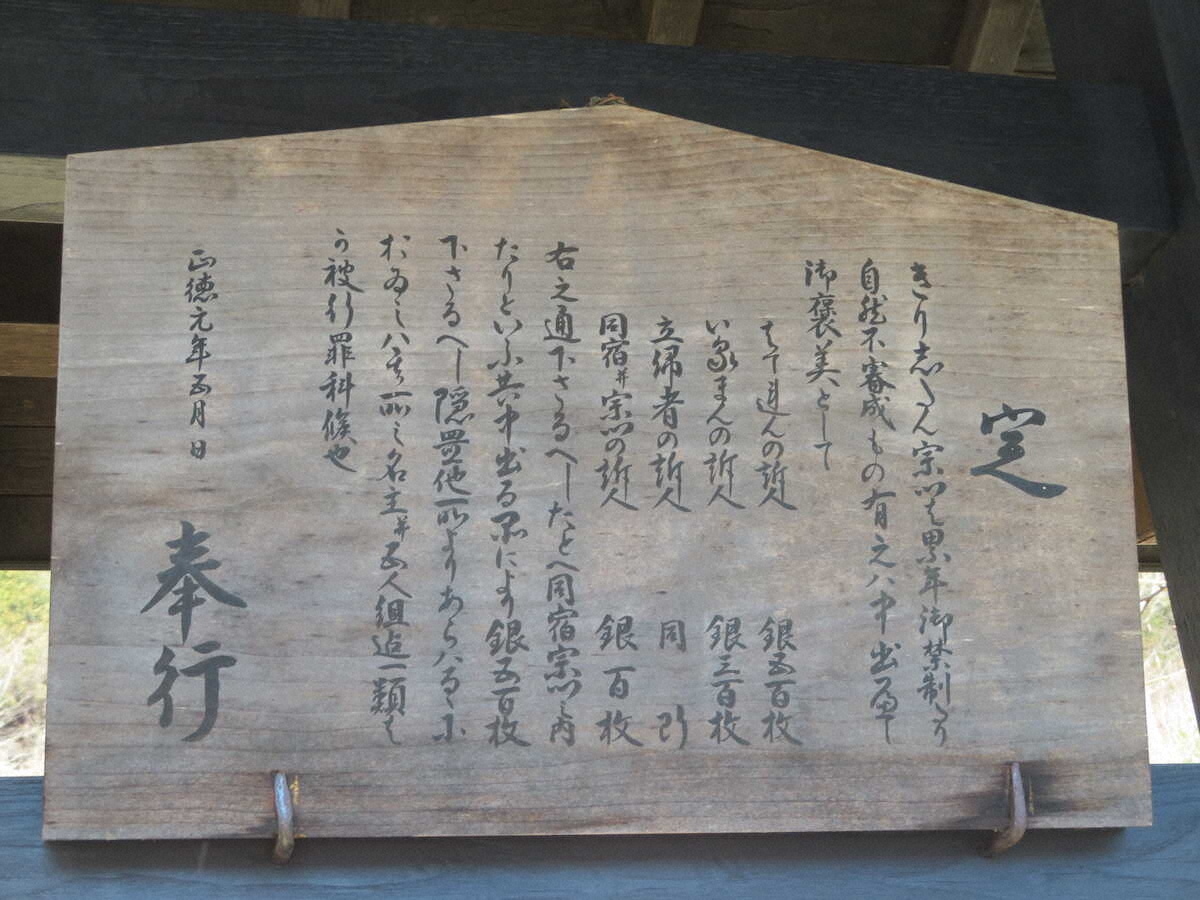 定
きりしたん宗門は累年御禁制たり
自然不審成もの有之ハ申出へし
御褒美として
はてれんの訴人 銀五百枚
いるまんの訴人 銀三百枚
立帰者の訴人 同 断
同宿并宗門の訴人 銀百枚
右之通下さるへしたとへ同宿宗門之内
たりといふ共申出る品により銀五百枚
下さるへし隠置他所よりあらハるゝに
おゐてハ其所之名主并五人組迄一類は
可被行罪科候也
正徳元年五月日
奉行